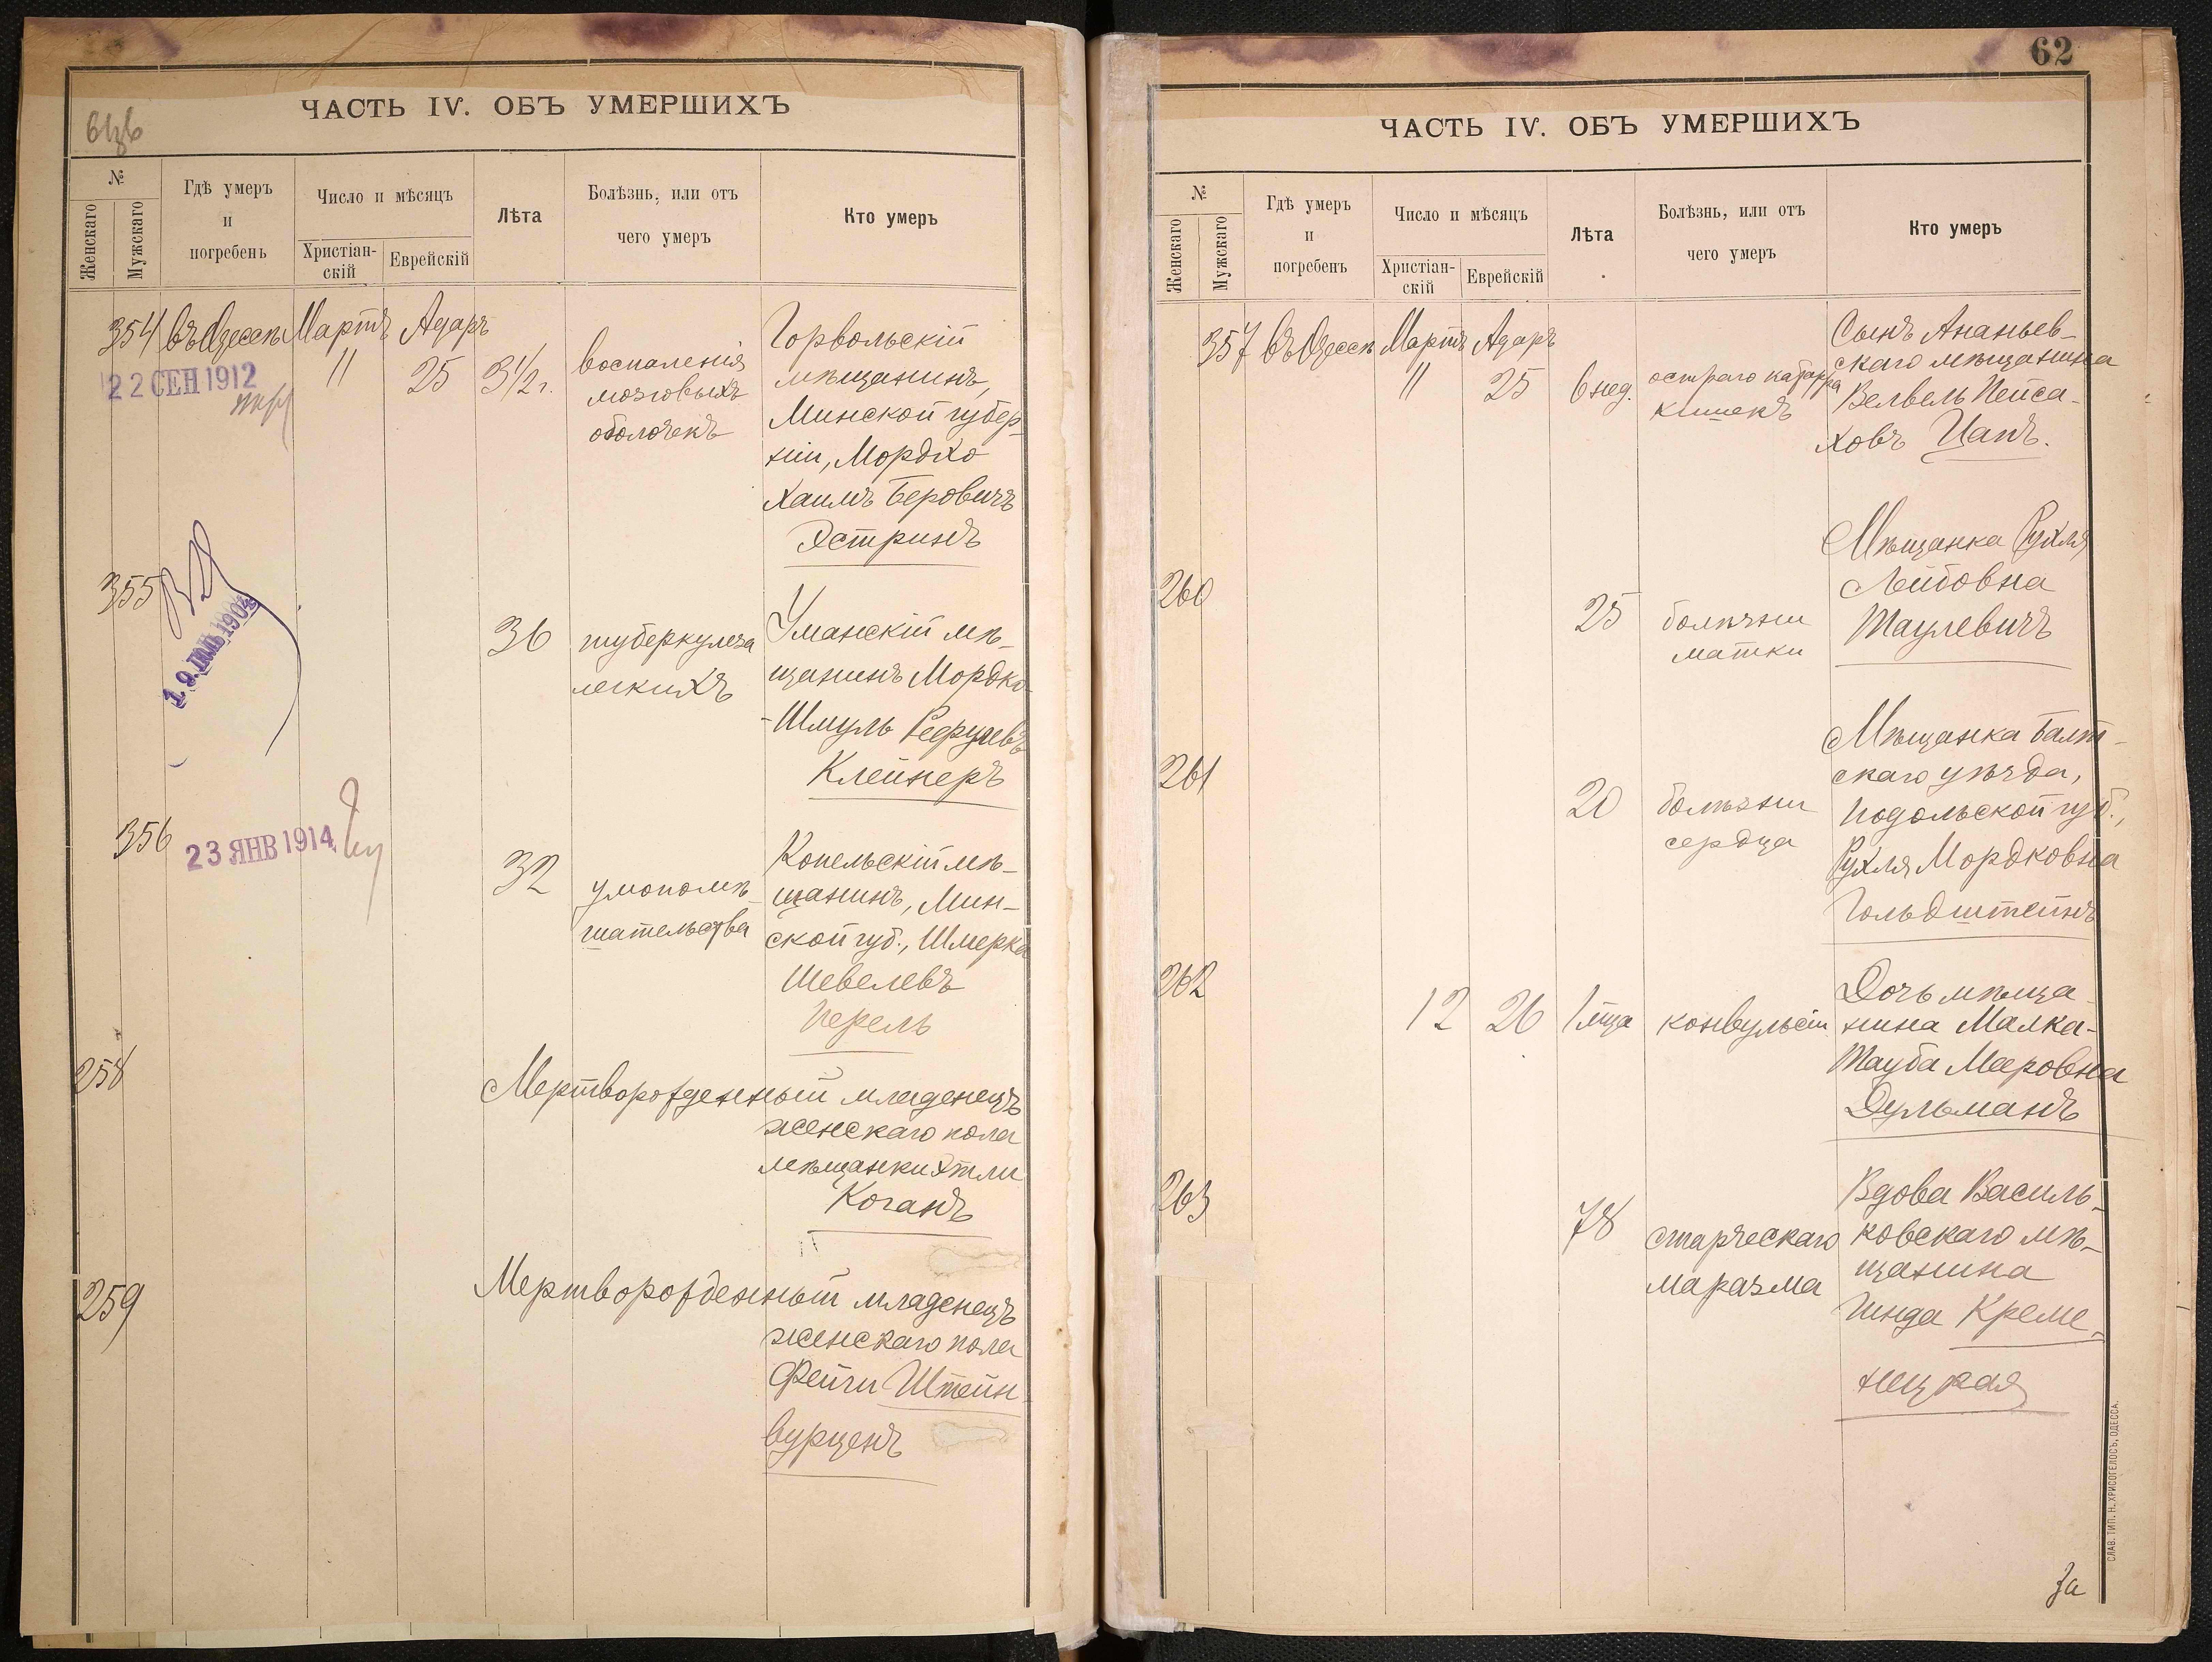 ЧАСТЬ IV. ОБЪ УМЕРШИХЪ
№
Женскаго
Мужскаго
Гдѣ умеръ
и
погребенъ
Число и мѣсяцъ
Христіан-
скій
Еврейскій
Лѣта
Болѣзнь, или отъ
чего умеръ
Кто умеръ
354 въ Одессѣ Мартъ Адаръ
11 25 3½ г.
воспаленія
мозговыхъ
оболочекъ
Горвольскій
мѣщанинъ,
Минской губер-
ніи, Мордко
Хаимъ Беровичъ
Эстринъ
22 СЕН 1912
355
1904
36
туберкулеза
легкихъ
Уманскій мѣ-
щанинъ Мордко-
-Шмуль
Клейнеръ
356
23 ЯНВ 1914
32
умопомѣ-
шательства
Копельскій мѣ-
щанинъ, Мин-
ской губ., Шмерка
Шевелевъ
Перель
258
Мертворожденный младенецъ
женскаго пола
мѣщанки Этли
Коганъ
259
Мертворожденный младенецъ
женскаго пола
Фейги Штейн-
вурценъ
62
ЧАСТЬ IV. ОБЪ УМЕРШИХЪ
№
Женскаго
Мужскаго
Гдѣ умеръ
и
погребенъ
Число и мѣсяцъ
Христіан-
скій
Еврейскій
Лѣта
Болѣзнь, или отъ
чего умеръ
Кто умеръ
357 въ Одессѣ Мартъ Адаръ
11 25 6 нед.
остраго катарра
кишекъ
Сынъ Ананьев-
скаго мѣщанина
Велвель Пейса-
ховъ Цапъ.
260
25
болѣзни
матки
Мѣщанка Рухля
Лейбовна
Таулевичъ
261
20
болѣзни
сердца
Мѣщанка Балт-
скаго уѣзда,
Подольской губ.,
Рухля Мордковна
Гольдштейнъ
262
12 26 1 мца
конвульсіи
Дочь мѣща-
нина Малка-
Тауба Мееровна
Дульманъ
263
78
старческаго
маразма
Вдова Василь-
ковскаго мѣ-
щанина
Гинда Креме-
нецкая
За
СЛАВ. ТИП. Н. ХРИСОГЕЛОСЪ, ОДЕССА.